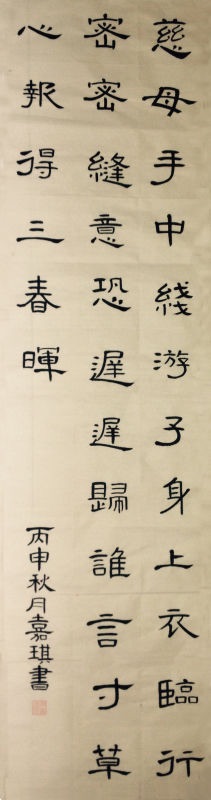 慈母手中綫游子身上衣臨行
密密縫意恐遲遲歸誰言寸草
心報得三春暉
丙申秋月嘉琪書